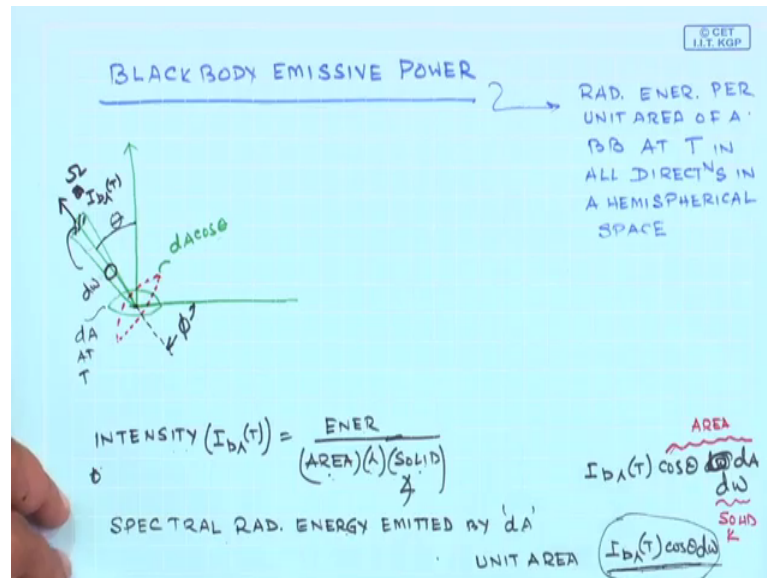 © CET
I.I.T. KGP
BLACK BODY EMISSIVE POWER
RAD. ENER. PER
UNIT AREA OF A
BB AT T IN
ALL DIRECTNS IN
A HEMISPHERICAL
SPACE
Ω
Ibλ(T)
θ
dAcosθ
dω
dA
AT
T
φ
INTENSITY (Ibλ(T)) = ENER
(AREA)(λ)(SOLID)
∡
AREA
Ibλ(T) cosθ dA
dω
SOLID
SPECTRAL RAD. ENERGY EMITTED BY 'dA'
UNIT AREA Ibλ(T)cosθdω